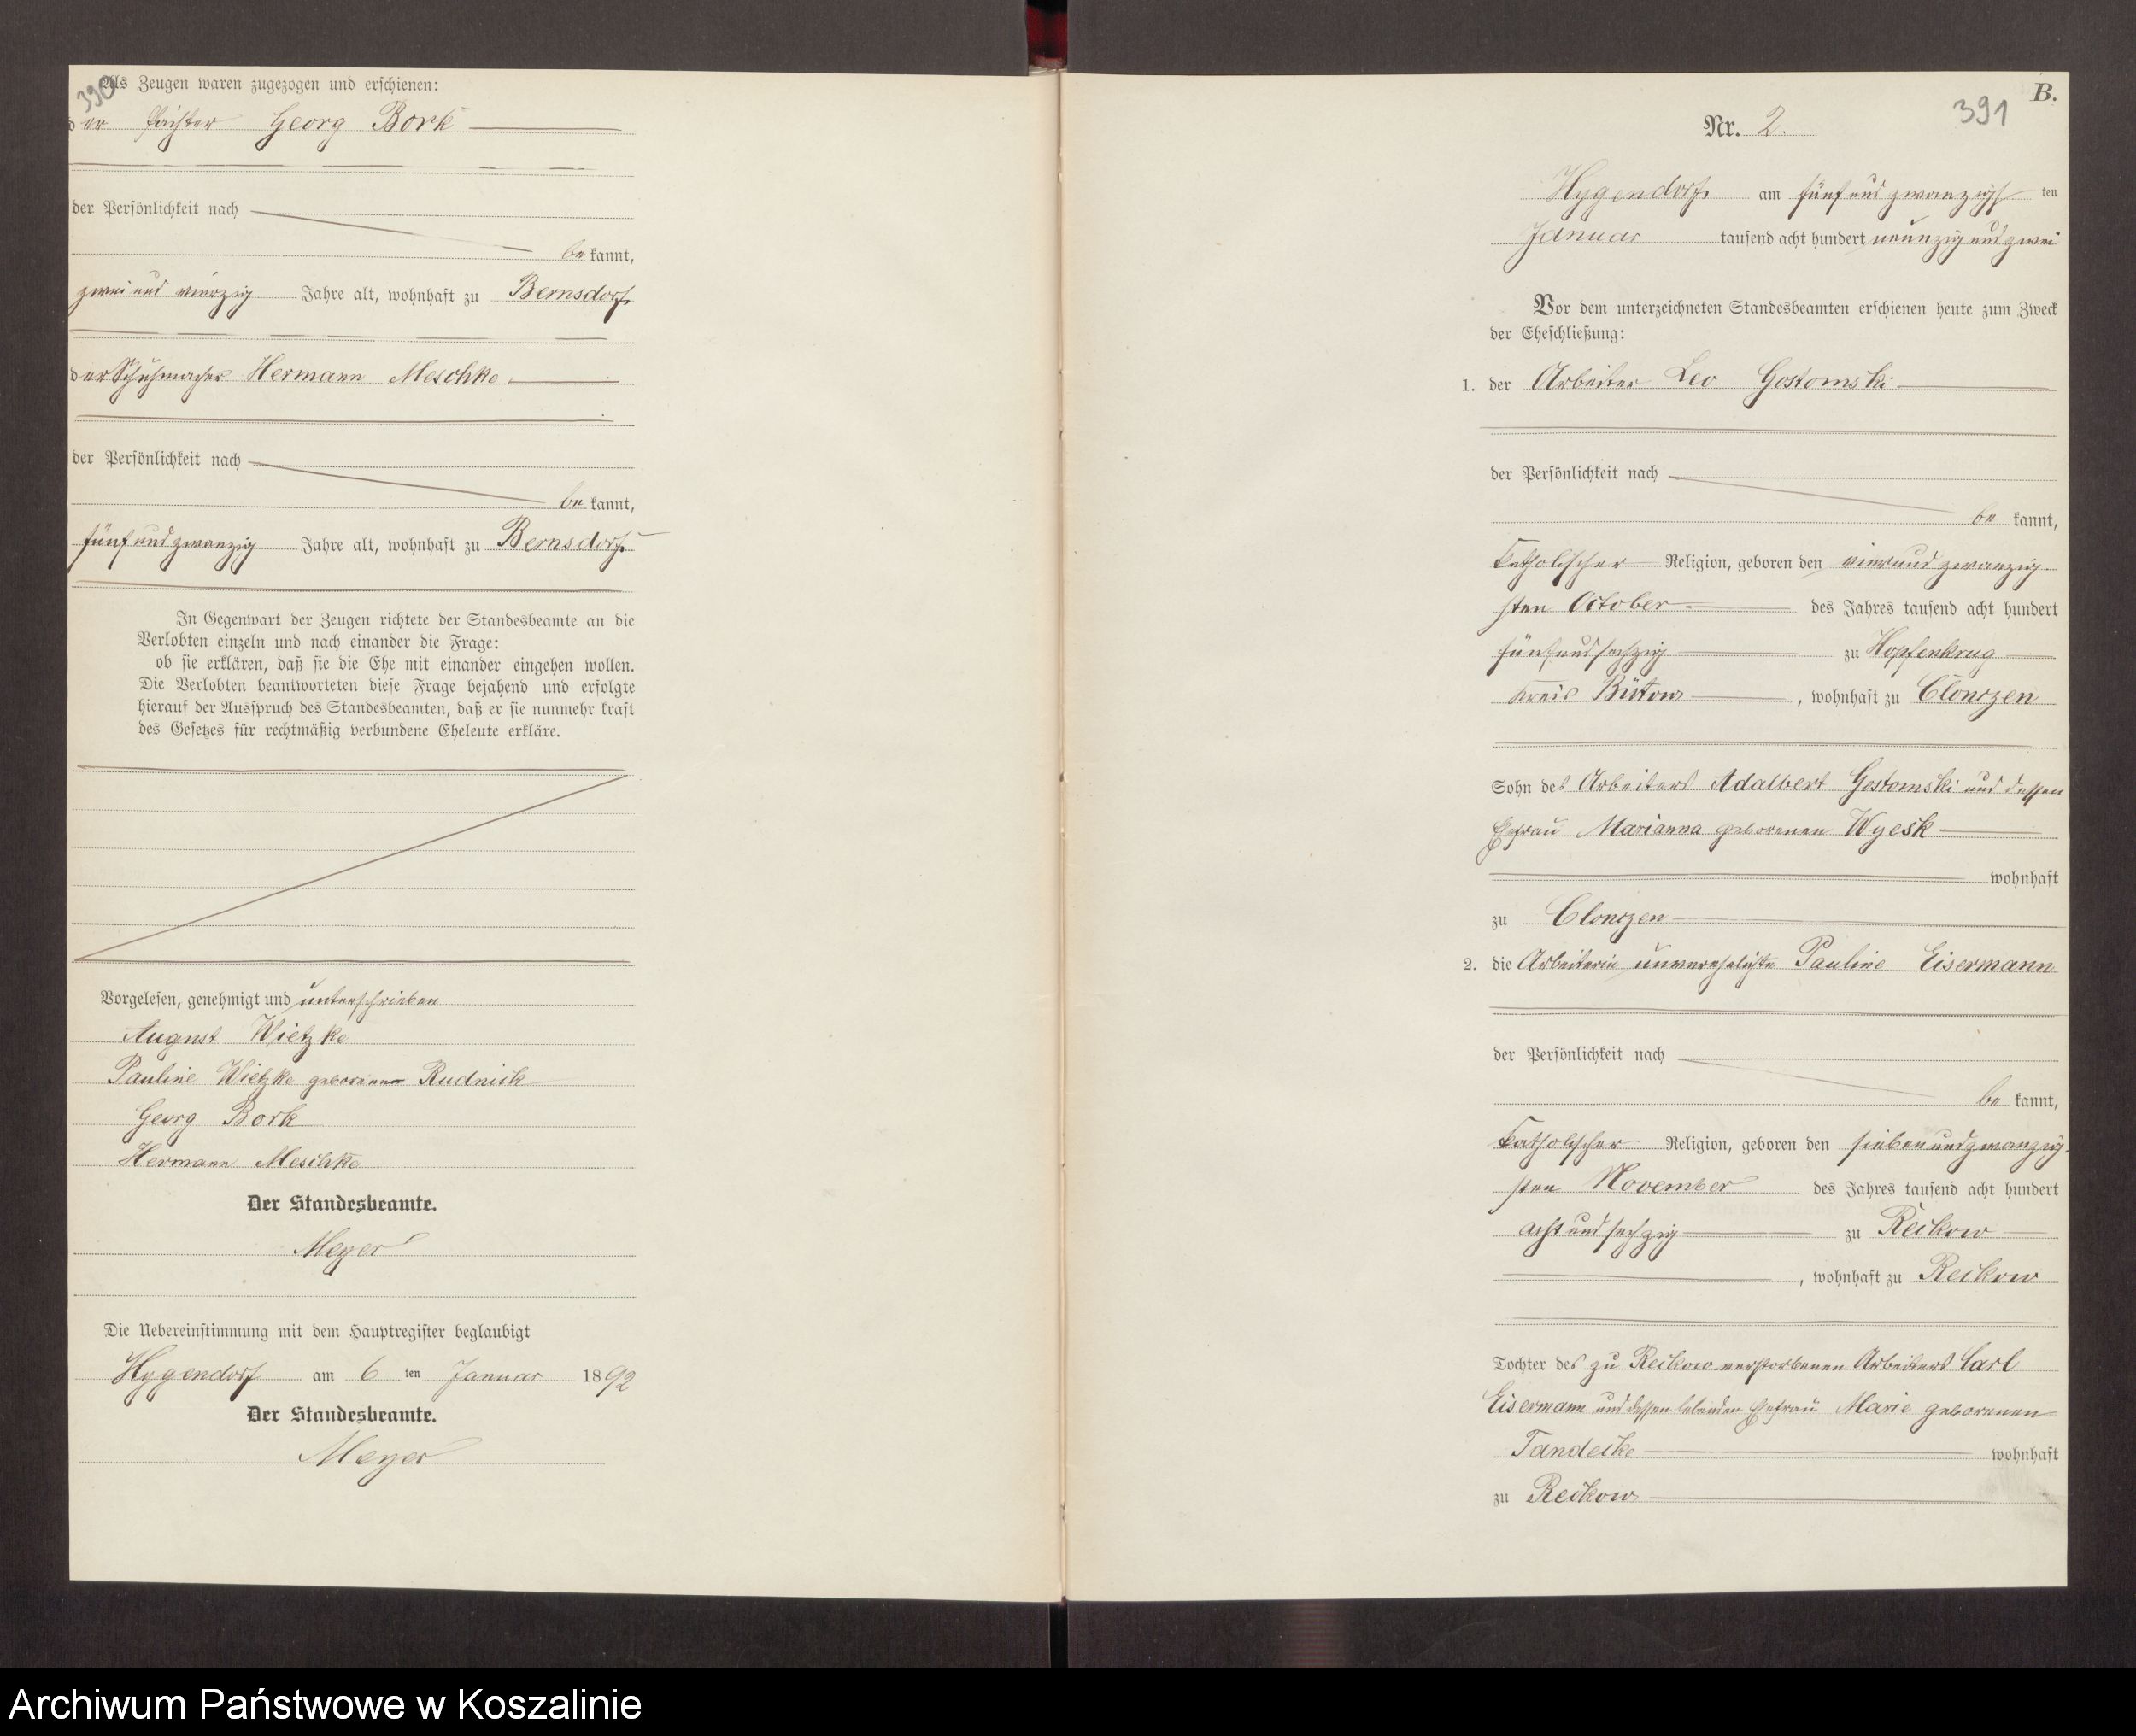 390
Als Zeugen waren zugezogen und erschienen:
der Pächter Georg Bork
der Persönlichkeit nach
be kannt,
zwei und vierzig Jahre alt, wohnhaft zu Bernsdorf
der Schuhmacher Hermann Meschke
der Persönlichkeit nach
be kannt,
fünf und zwanzig Jahre alt, wohnhaft zu Bernsdorf
In Gegenwart der Zeugen richtete der Standesbeamte an die
Verlobten einzeln und nach einander die Frage:
ob sie erklären, daß sie die Ehe mit einander eingehen wollen.
Die Verlobten beantworteten diese Frage bejahend und erfolgte
hierauf der Ausspruch des Standesbeamten, daß er sie nunmehr kraft
des Gesetzes für rechtmäßig verbundene Eheleute erkläre.
Vorgelesen, genehmigt und unterschrieben
August Wietzke
Pauline Wietzke geborene Rudnick
Georg Bork
Hermann Meschke
Der Standesbeamte.
Meyer
Die Uebereinstimmung mit dem Hauptregister beglaubigt
Hygendorf am 6 ten Januar 1892
Der Standesbeamte.
Meyer
B.
391
Nr. 2.
Hygendorf am fünf und zwanzigsten
Januar tausend acht hundert neunzig und zwei
Vor dem unterzeichneten Standesbeamten erschienen heute zum Zweck
der Eheschließung:
1. der Arbeiter Leo Gostomski
der Persönlichkeit nach
be kannt,
katholischer Religion, geboren den vier und zwanzig-
sten October des Jahres tausend acht hundert
fünf und sechzig zu Hopfenkrug
Kreis Bütow, wohnhaft zu Clonczen
Sohn des Arbeiters Adalbert Gostomski und dessen
Ehefrau Marianna geborenen Wyesk
wohnhaft
zu Clonczen
2. die Arbeiterin unverehelichte Pauline Eisermann
der Persönlichkeit nach
be kannt,
katholischer Religion, geboren den sieben und zwanzig-
sten November des Jahres tausend acht hundert
acht und sechzig zu Reckow
, wohnhaft zu Reckow
Tochter des zu Reckow verstorbenen Arbeiters Carl
Eisermann und dessen lebenden Ehefrau Marie geborenen
Tandecke wohnhaft
zu Reckow
Archiwum Państwowe w Koszalinie